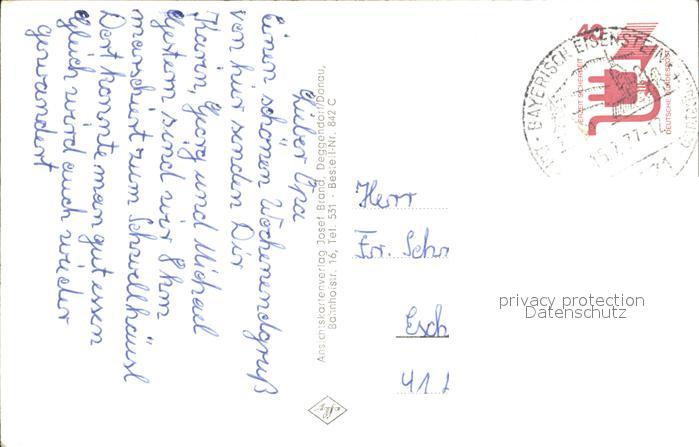 Lieber Opa
Einen schönen Wochenendgruß
von hier senden Dir
Karin, Georg und Michael
Gestern sind wir 8 km
marschiert zum Schwellhäusl
Dort konnte man gut essen
Gleich wird auch wieder
gewandert
Ansichtskartenverlag Josef Brand, Deggendorf/Donau,
Bahnhofstr. 16, Tel. 551 · Bestell-Nr. 842 C
40
JEDERZEIT SICHERHEIT
DEUTSCHE BUNDESPOST
BAYERISCH EISENSTEIN
Herr
Fr. Schr
Esch
41
privacy protection
Datenschutz